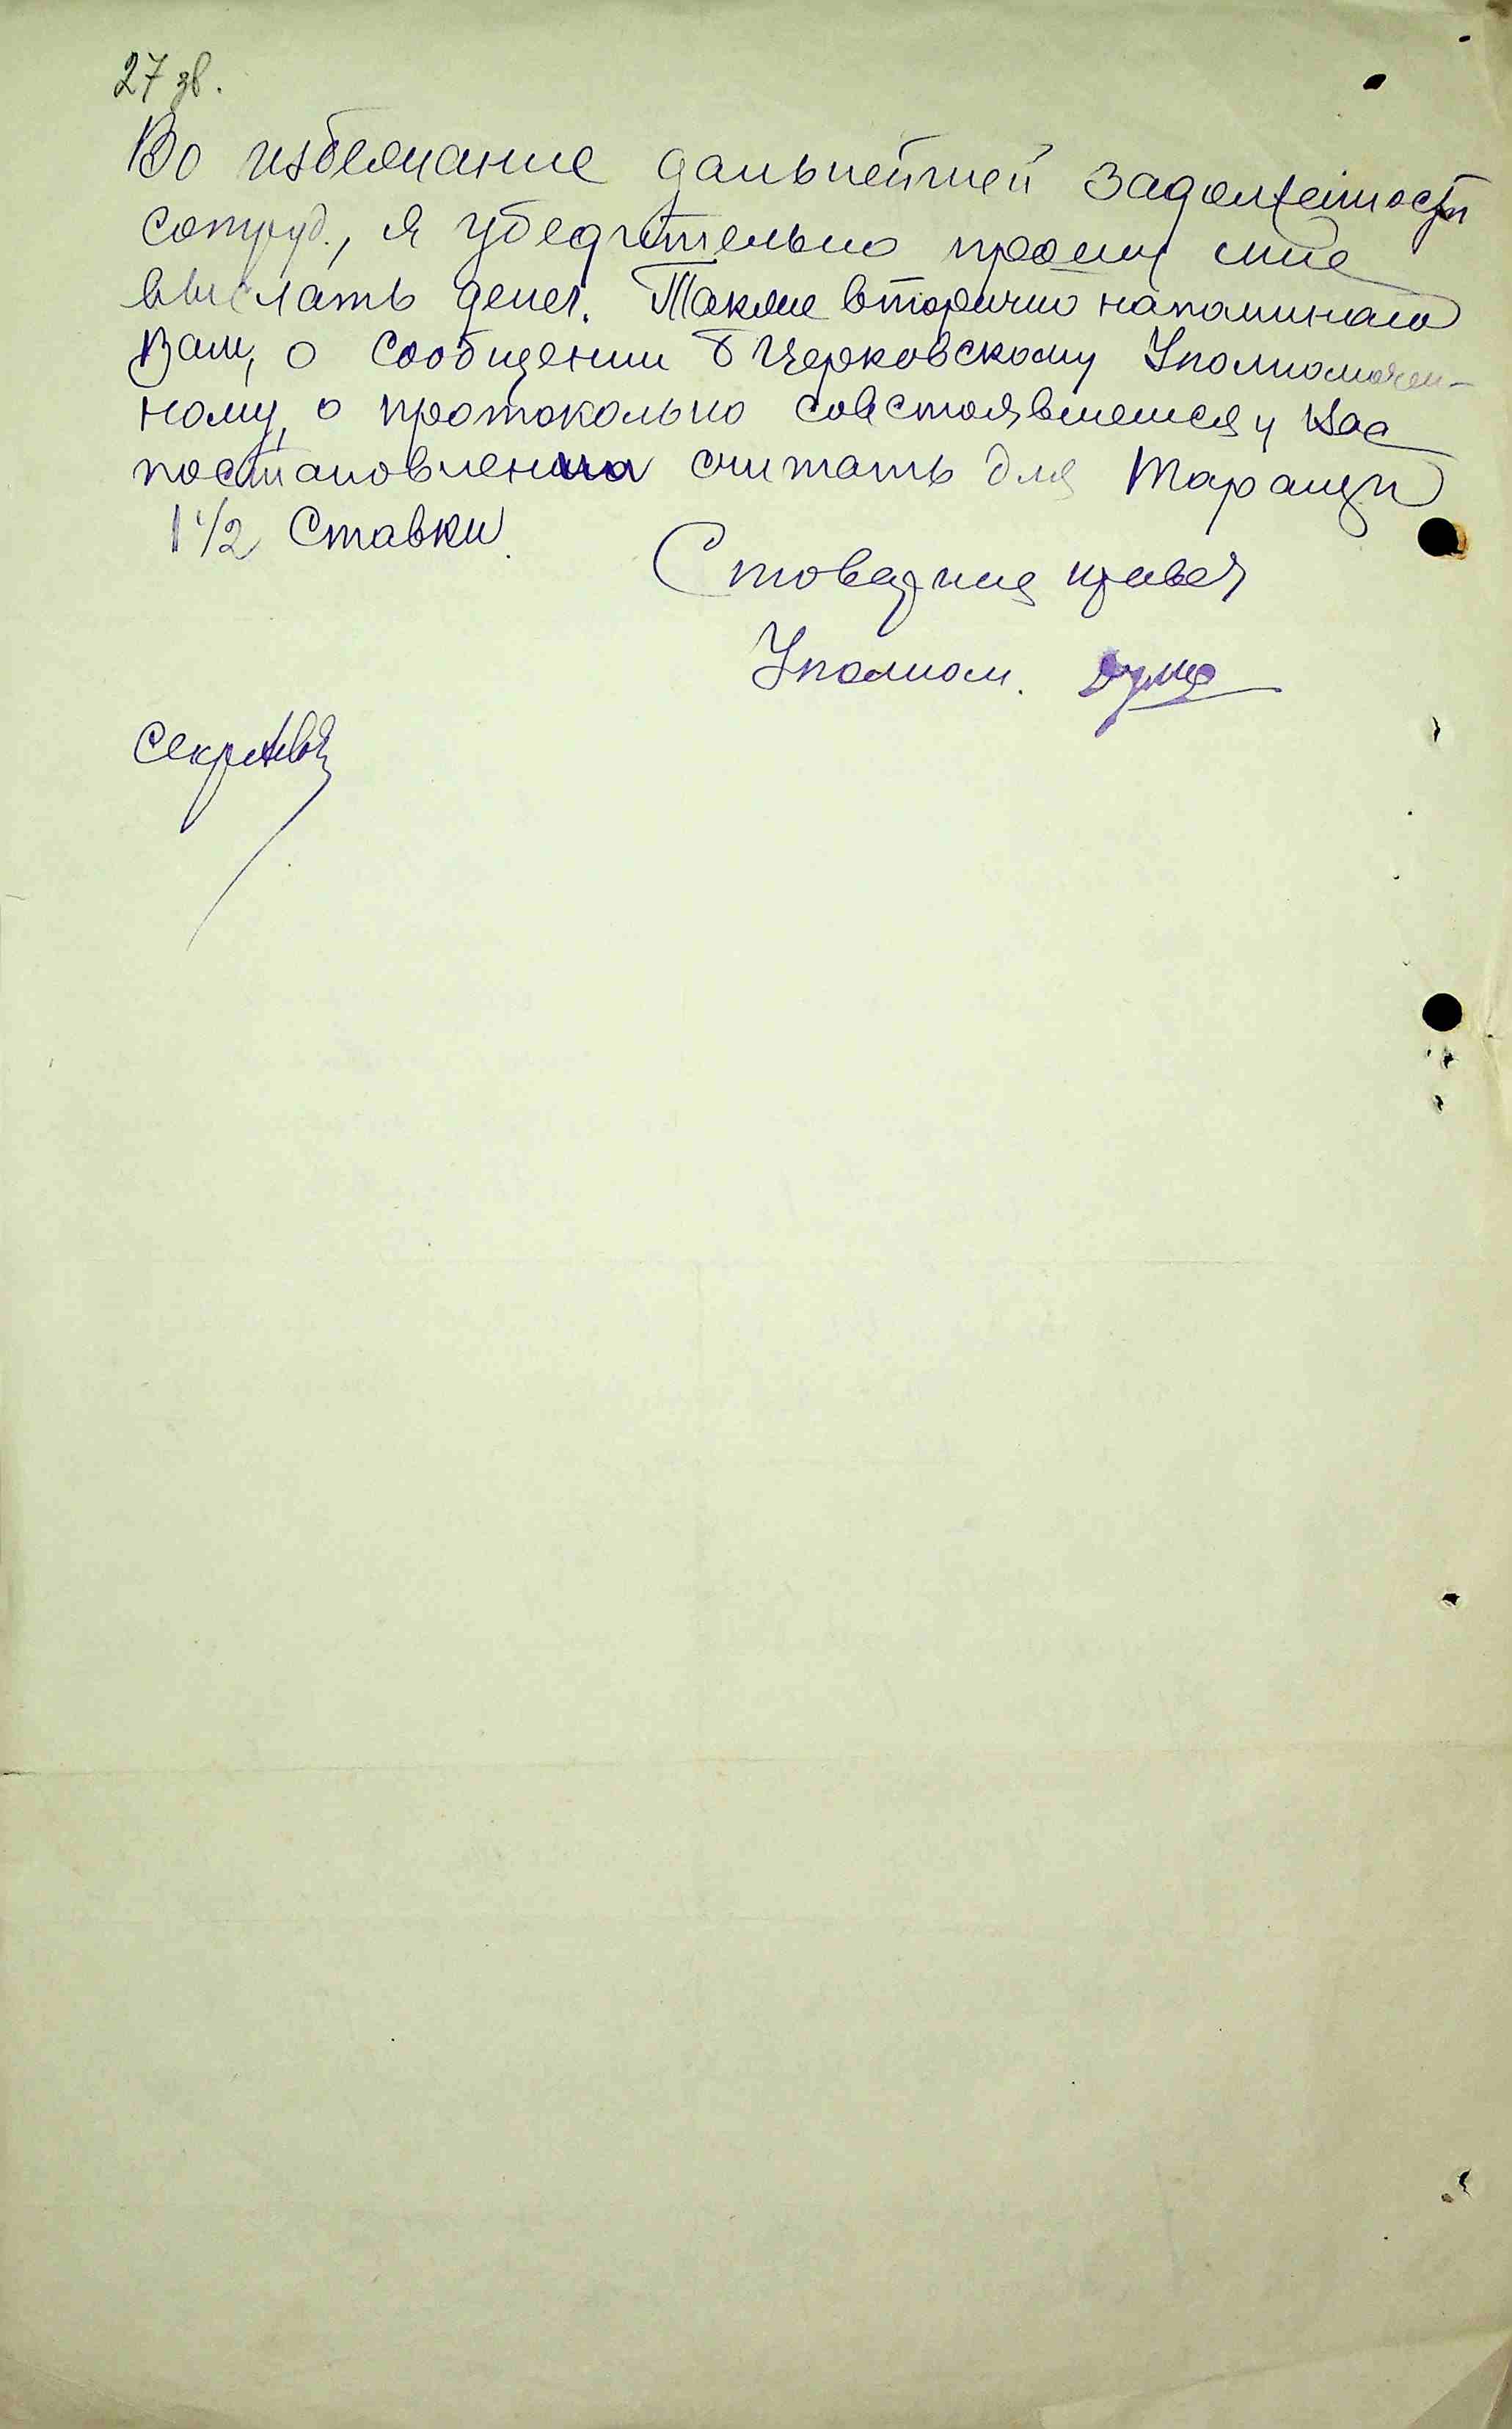 27 зв.
Во избежание дальнейшей задолженности
сотруд., я убедительно прошу мне
выслать денег. Также вторично напоминаю
Вам, о сообщении БЦерковскому Уполномочен-
ному, о протокольно совстоявшемся у Вас
постановлении считать для Таращи
1 1/2 Ставки.
С товарищ. привет
Уполном.
Секретарь